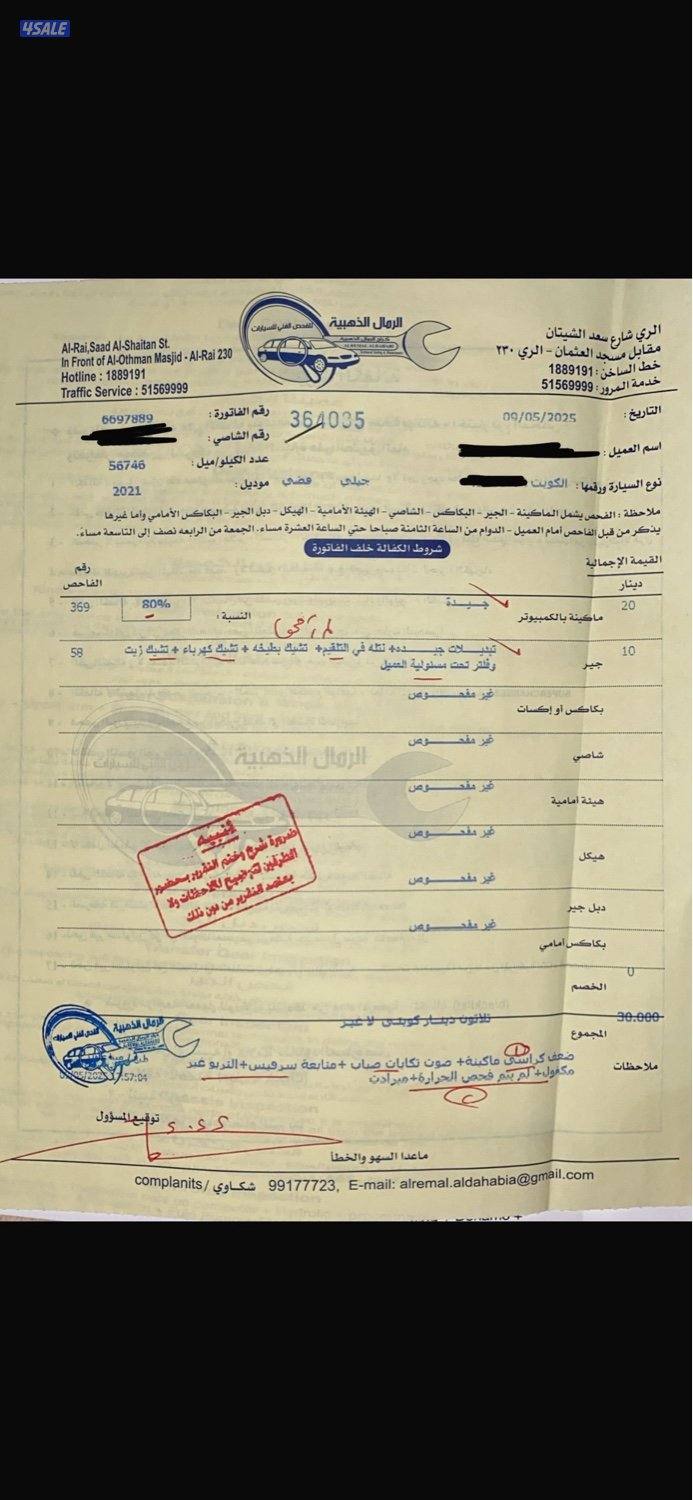 4SALE
الرمال الذهبية
للفحص الفني للسيارات
Al-Rai,Saad Al-Shaitan St.
In Front of Al-Othman Masjid - Al-Rai 230
Hotline : 1889191
Traffic Service : 51569999
الري شارع سعد الشيتان
مقابل مسجد العثمان - الري ٢٣٠
خط الساخن: 1889191
خدمة المرور: 51569999
التاريخ : 09/05/2025
364035
رقم الفاتورة : 6697889
اسم العميل :
رقم الشاصي :
نوع السيارة ورقمها : الكويت
جيلي فضي
عدد الكيلو/ميل : 56746
موديل : 2021
ملاحظة : الفحص يشمل الماكينة - الجير - البكاكس - الشاصي - الهيئة الأمامية - الهيكل - دبل الجير - البكاكس الأمامي وأما غيرها
يذكر من قبل الفاحص أمام العميل - الدوام من الساعة الثامنة صباحا حتى الساعة العشرة مساء، الجمعة من الرابعه نصف إلى التاسعة مساءً.
شروط الكفالة خلف الفاتورة
القيمة الإجمالية
دينار
رقم الفاحص
20 ماكينة بالكمبيوتر جيدة النسبة : 80% 369
10 جير تبديلات جيده+ نتله في التلقيم+ تشيك بطيخه + تشيك كهرباء + تشيك زيت 58
وفلتر تحت مسئولية العميل
بكاكس أو إكسات غير مفحوص
شاصي غير مفحوص
هيئة امامية غير مفحوص
هيكل غير مفحوص
دبل جير غير مفحوص
بكاكس أمامي غير مفحوص
تنبيه
ضرورة شرح وختم التقرير بحضور
الطرفين لتوضيح الملاحظات ولا
يعتمد التقرير من دون ذلك
الخصم 0
المجموع 30.000 ثلاثون دينار كويتي لا غير
ملاحظات ضعف كراسي ماكينة+ صوت تكايات صباب +متابعة سرفيس+التربو غير
مكفول+ لم يتم فحص الحرارة+مبرادت
الرمال الذهبية
17:57:04
توقيع المسؤول
ماعدا السهو والخطأ
complanits / شكاوي 99177723, E-mail: alremal.aldahabia@gmail.com